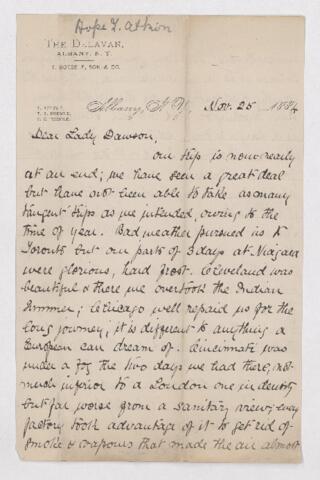 Hope T. Atkinson
THE DELAVAN,
ALBANY, N. Y.
T. ROESSLE, SON & CO.
T. ROESSLE,
T. E. ROESSLE,
Albany, N.Y., Nov. 25 1884
Dear Lady Dawson,
Our trip is now nearly
at an end; we have seen a great deal
but have not been able to take as many
tangent trips as we intended, owing to the
time of year. Bad weather pursued us to
Toronto but our parts of 3 days at Niagara
were glorious, hard frost. Cleveland was
beautiful & there we overtook the Indian
Summer; Chicago well repaid us for the
long journey, it is different to anything a
European can dream of. Cincinnati was
under a fog the two days we had there, not
much inferior to a London one in density
but far worse from a sanitary view; every
factory took advantage of it to get rid of
smoke & vapours that made the air almost